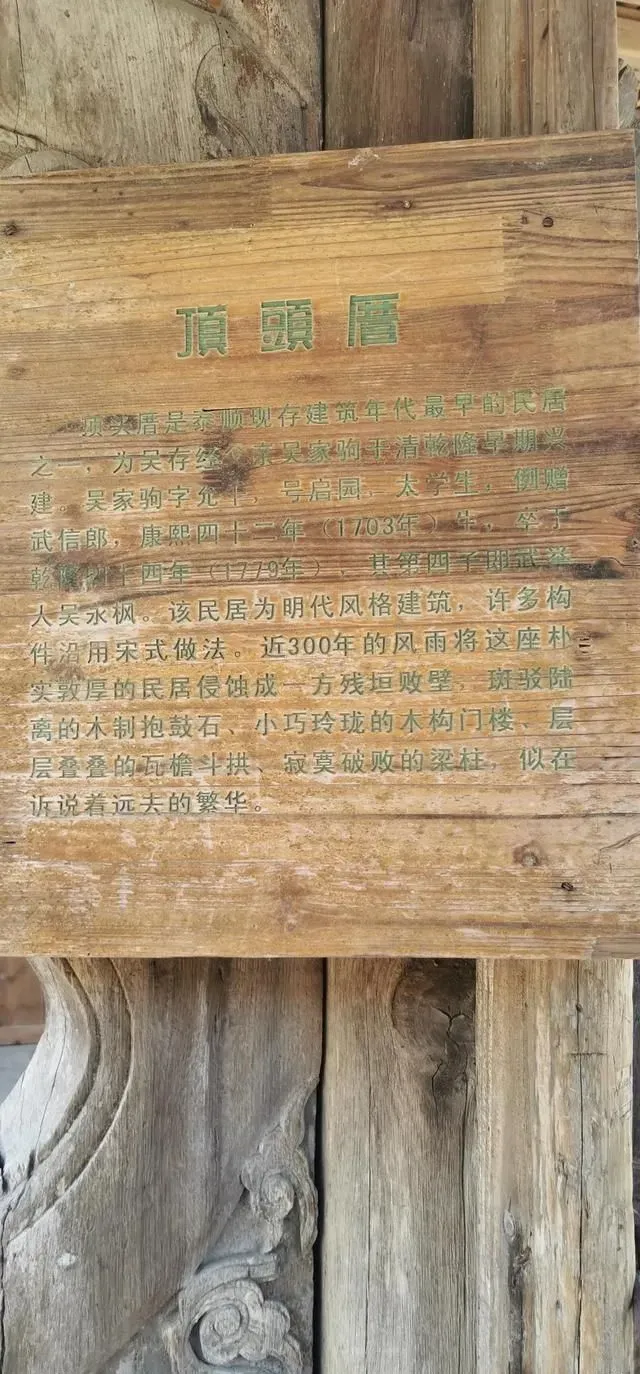 頂頭厝
顶头厝是泰顺现存建筑年代最早的民居
之一，为吴存经 亲吴家驹于清乾隆早期兴
建。吴家驹字允 ，号启园，太学生，例赠
武信郎，康熙四十二年（1703年）生，卒于
乾隆四十四年（1779年），其第四子即武举
人吴永枫。该民居为明代风格建筑，许多构
件沿用宋式做法。近300年的风雨将这座朴
实敦厚的民居侵蚀成一方残垣败壁，斑驳陆
离的木制抱鼓石、小巧玲珑的木构门楼、层
层叠叠的瓦檐斗拱、寂寞破败的梁柱，似在
诉说着远去的繁华。